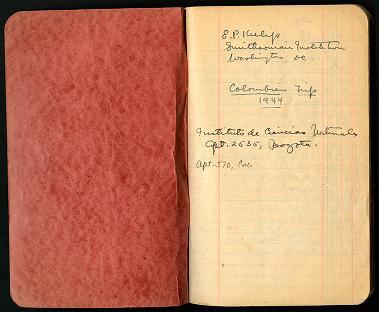 E. P. Killip
Smithsonian Institution
Washington, DC.
Colombian Trip
1944
Instituto de Ciencias Naturales
Apt. 2535, Bogota.
Apt. 570, Cali